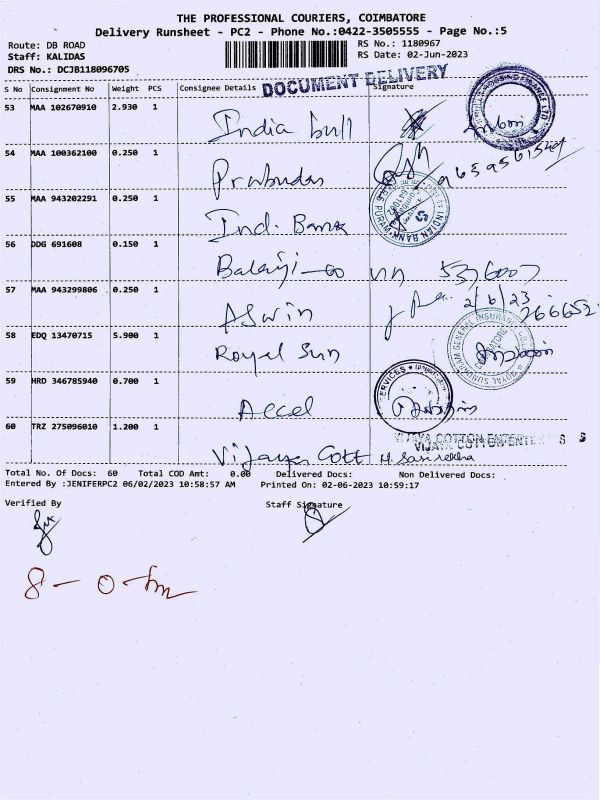 THE PROFESSIONAL COURIERS, COIMBATORE
Delivery Runsheet - PC2 - Phone No.:0422-3505555 - Page No.:5
Route: DB ROAD
Staff: KALIDAS
DRS No.: DCJB118096705
RS No.: 1180967
RS Date: 02-Jun-2023
DOCUMENT DELIVERY
S No Consignment No Weight PCS Consignee Details Signature
53 MAA 102670910 2.930 1 India bull
54 MAA 100362100 0.250 1 Prabudas
55 MAA 943202291 0.250 1 Ind. Bank
INDIAN BANK
56 DDG 691608 0.150 1 Balayi
57 MAA 943299806 0.250 1 Aswin 2/6/23
58 EDQ 13470715 5.900 1 Royal Sun
ROYAL SUNDARAM GENERAL INSURANCE CO.
59 HRD 346785940 0.700 1 Accel
60 TRZ 275096010 1.200 1 Vijaya Cott
Total No. Of Docs: 60 Total COD Amt: 0.00 Delivered Docs: Non Delivered Docs:
Entered By :JENIFERPC2 06/02/2023 10:58:57 AM Printed On: 02-06-2023 10:59:17
Verified By Staff Signature